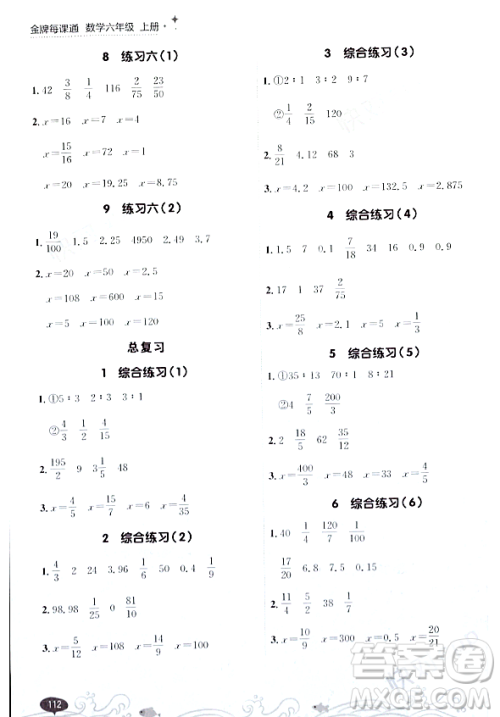 金牌每课通 数学六年级 上册
8 练习六(1)
1. 42 3/8 1/4 116 2/75 30/50
2. x=16 x=7 x=14
x=15/16 x=18 x=9.25
x=10 x=19.25 x=12
9 练习六(2)
1. 19/100 1.5 2.25 4950 2.43 3.7
2. x=20 x=50 x=2.5
x=108 x=600 x=15
x=5 x=100 x=120
总复习
1 综合练习(1)
1. ①5∶3 2∶3 1∶2
②4/3 1/2 20
2. 195/2 9 11/5 3/5 48
3. x=4/5 x=115 x=4/15
2 综合练习(2)
1. 4/3 2 24 3.96 1/50 2/9
2. 98.98 1/25 0 81/10
3. x=5/12 x=108 x=100/9
3 综合练习(3)
1. ①2∶1 3∶1 3∶2
②1/4 2/15 120
2. 8/21 4.12 38 15
3. x=4.2 x=132.5 x=2.875
4 综合练习(4)
1. 1.5 7 0 7/18 34 16 0.9
2. 17 1 37 2/75
3. x=25/8 x=2 x=0.9
5 综合练习(5)
1. ①35∶13 70∶1 8∶1
②4 7/5 200/3
2. 2 18/5 62 35/12
3. x=400/3 x=48 x=4/21
6 综合练习(6)
1. 40 1/4 120/7 1/100
17/20 17 14 0
2. 11/4 4/5 58 0
3. x=9/10 x=300 x=20/21
112
答案圈
MXQE.COM